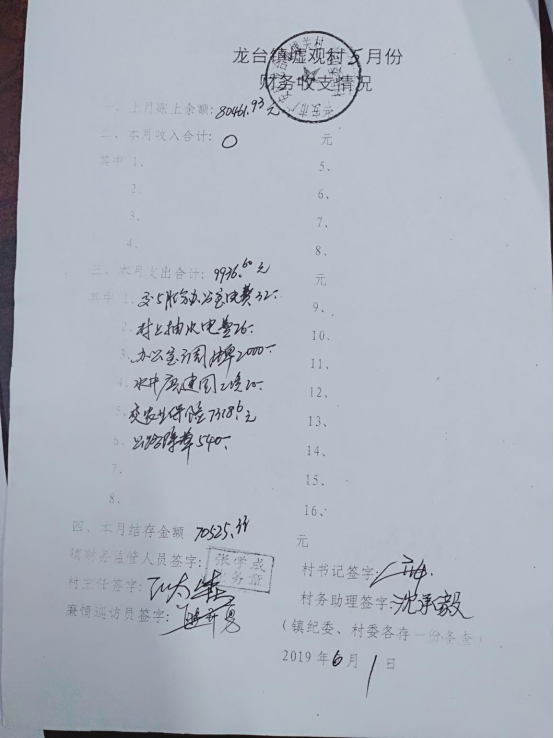 龙台镇墟观村5月份
财务收支情况
一、上月账上余额:80461.93元
二、本月收入合计:0 元
其中 1、 5、
2、 6、
3、 7、
4、 8、
三、本月支出合计:9936.60元 元
其中 1、交5月份办公室电费32- 9、
2、村上抽水电费26- 10、
3、办公室制牌2000- 11、
4、 12、
5、交农业保险7318.6元 13、
6、公路除草540- 14、
7、 15、
8、 16、
四、本月结存金额 70525.33 元
镇财务监管人员签字:张学成
村书记签字:
村主任签字:
村务助理签字:沈承毅
廉情巡访员签字:
(镇纪委、村委各存一份备查)
2019年6月1日